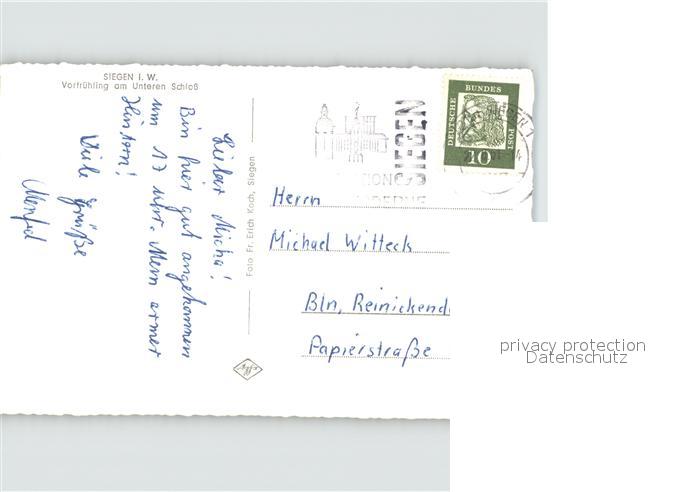 SIEGEN i. W.
Vorfrühling am Unteren Schloß
Lieber Micha!
Bin hier gut angekommen
um 17 Uhr. Mein armer
Hintern!
Viele Grüße
Manfred
Foto Fr. Erich Koch, Siegen
SIEGEN
DEUTSCHE
BUNDES
POST
10
Herrn
Michael Witteck
Bln, Reinickend
Papierstraße
privacy protection
Datenschutz